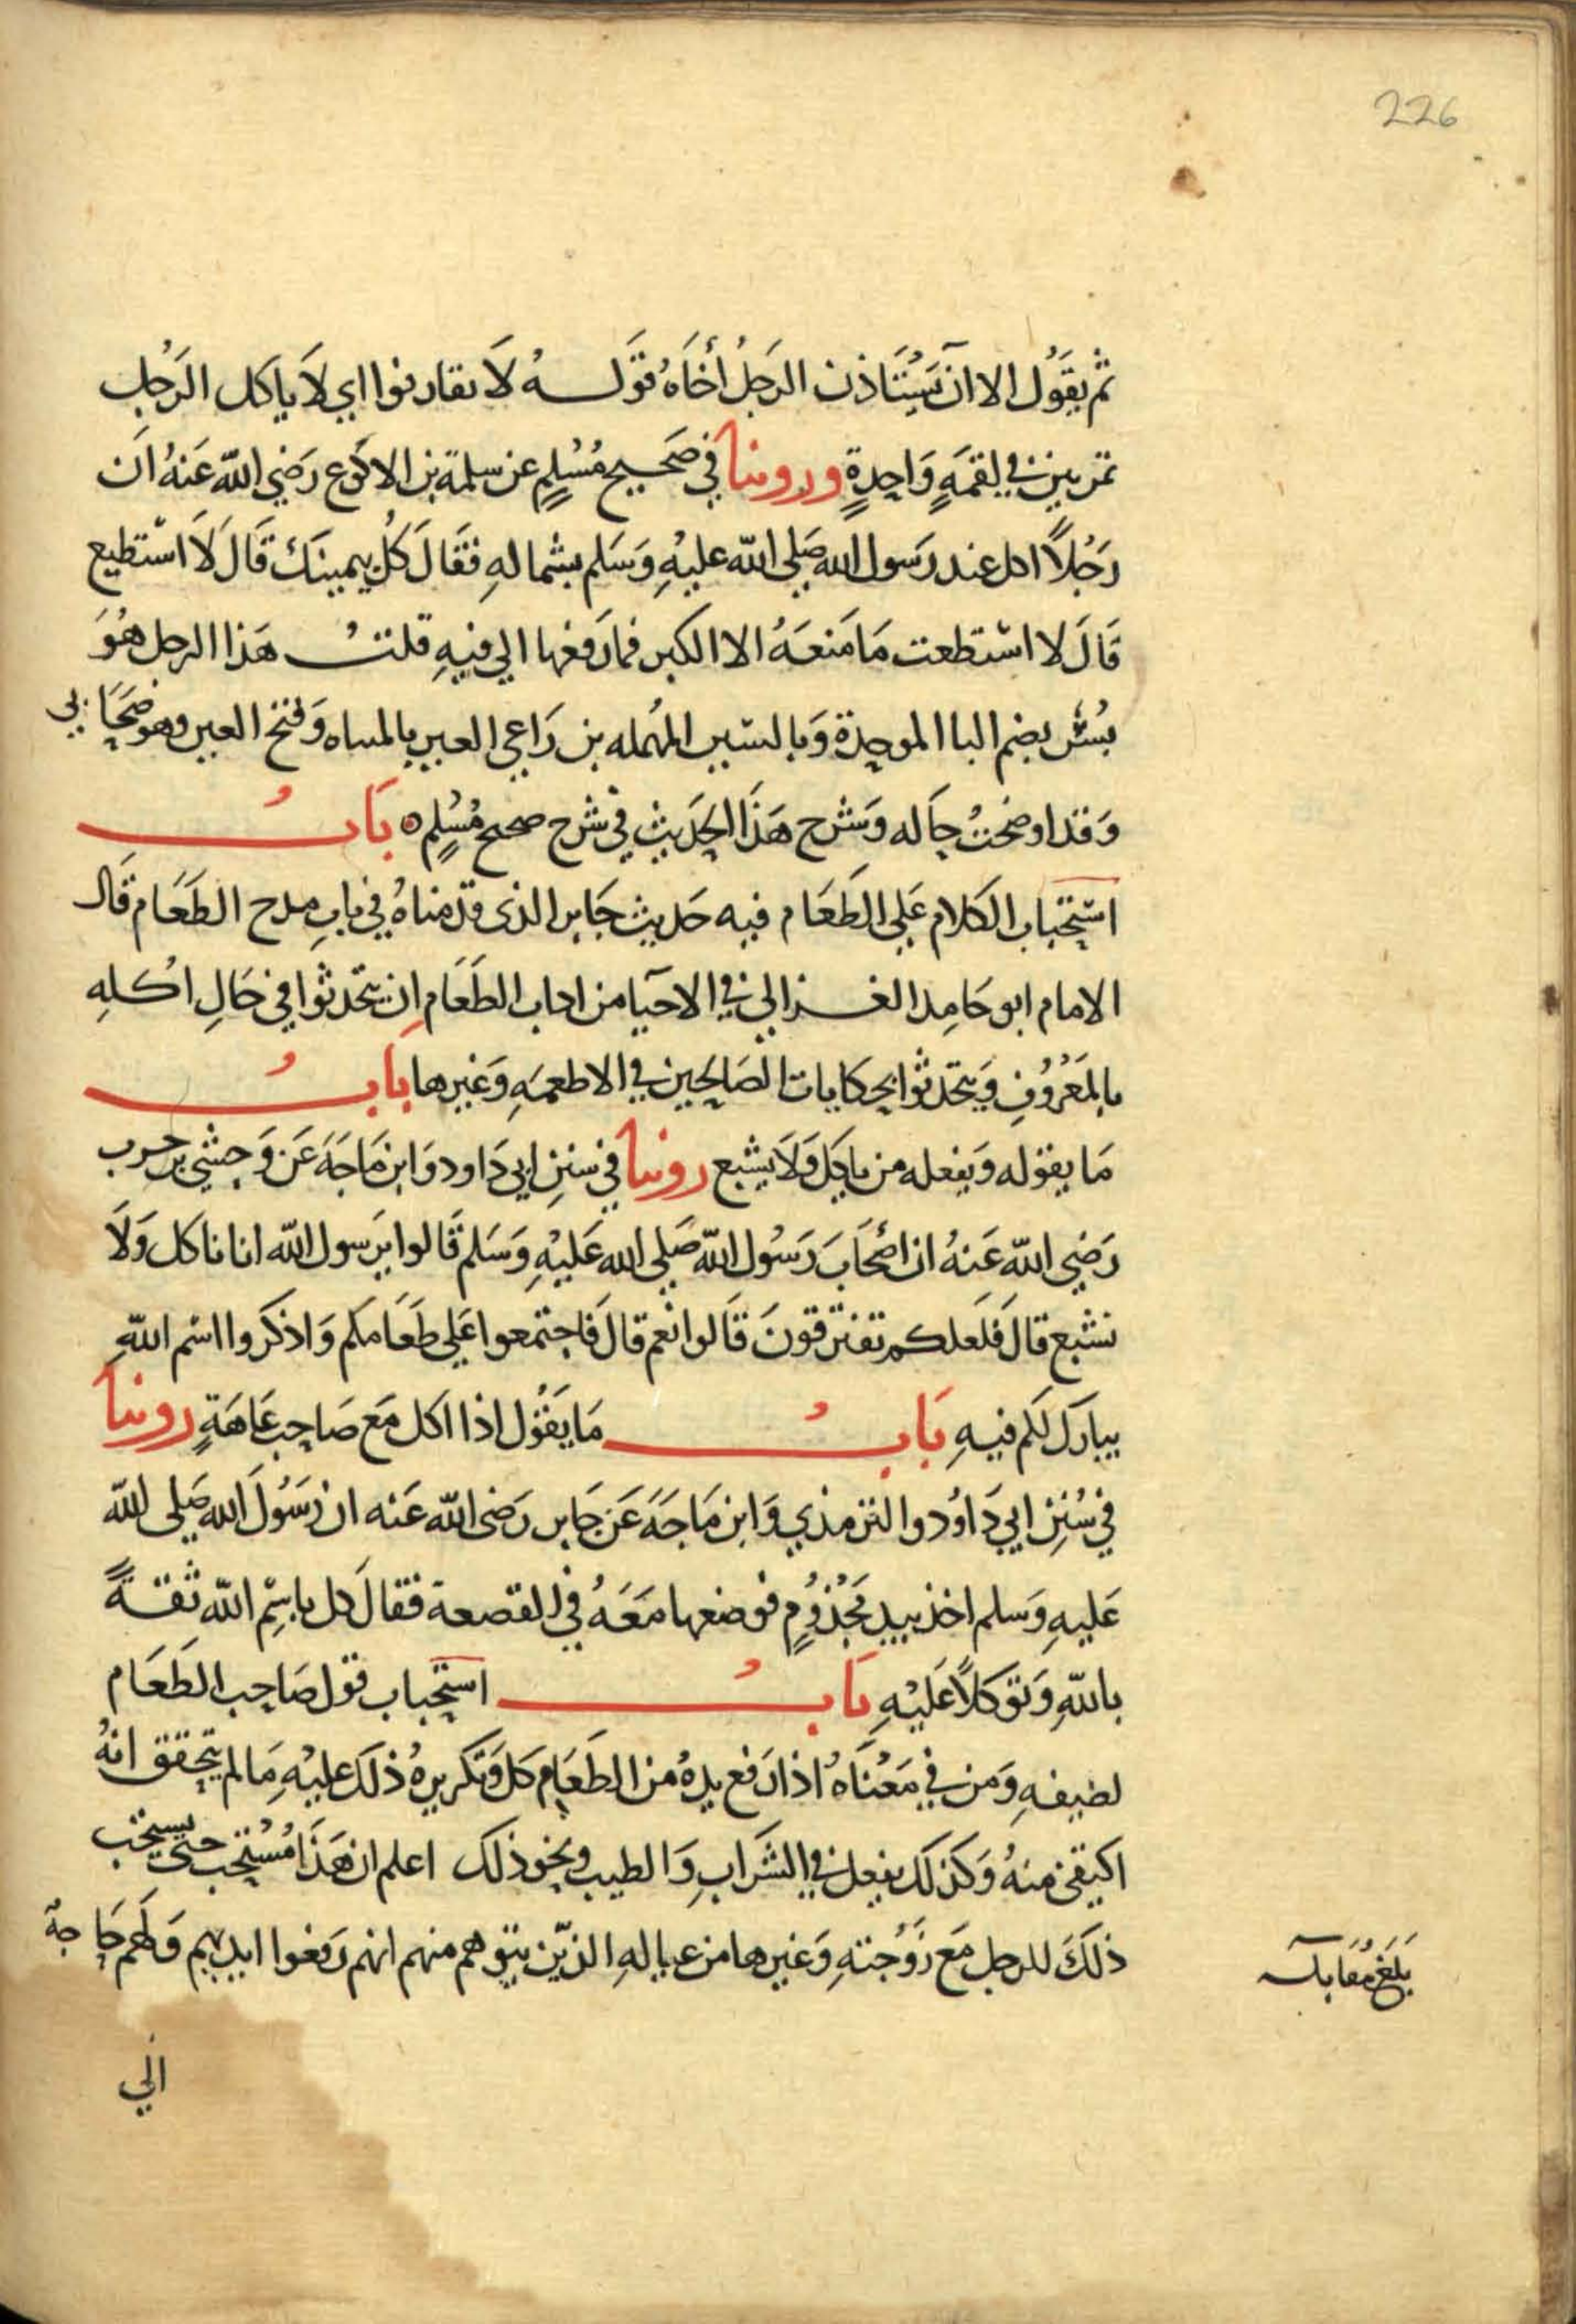 226
ثم يقول الا ان يستاذن الرجل اخاه قوله لا تقارنوا اي لا ياكل الرجل
تمرتين في لقمة واحدة وروينا في صحيح مسلم عن سلمة بن الاكوع رضي الله عنه ان
رجلا اكل عند رسول الله صلى الله عليه وسلم بشماله فقال كل بيمينك قال لا استطيع
قال لا استطعت ما منعه الا الكبر فما رفعها الي فيه قلت هذا الرجل هو
بسر بضم البا الموحدة وبالسين المهمله بن راعي العير بالمثناه وفتح العين وهو صحابي
وقد اوضحت حاله وشرح هذا الحديث في شرح صحيح مسلم ه باب
استحباب الكلام علي الطعام فيه حديث جابر الذي قدمناه في باب مدح الطعام قال
الامام ابو حامد الغزالي في الاحيا من اداب الطعام ان يتحدثوا في حال اكله
بالمعروف ويتحدثوا بحكايات الصالحين في الاطعمة وغيرها باب
ما يقوله ويفعله من ياكل ولا يشبع روينا في سنن ابي داود وابن ماجة عن وحشي بن حرب
رضي الله عنه ان اصحاب رسول الله صلي الله عليه وسلم قالوا يرسول الله انا ناكل ولا
نشبع قال فلعلكم تفترقون قالوا نعم قال فاجتمعوا علي طعامكم واذكروا اسم الله
يبارك لكم فيه باب ما يقول اذا اكل مع صاحب عاهة روينا
في سنن ابي داود والترمذي وابن ماجة عن جابر رضي الله عنه ان رسول الله صلى الله
عليه وسلم اخذ بيد مجذوم فوضعها معه في القصعة فقال كل باسم الله ثقة
بالله وتوكلا عليه باب استحباب قول صاحب الطعام
لضيفه ومن في معناه اذا رفع يده من الطعام كل وتكريره ذلك عليه ما لم يتحقق انه
اكتفي منه وكذلك يفعل في الشراب والطيب ونحو ذلك اعلم ان هذا مستحب حتى يستحب
ذلك للرجل مع زوجته وغيرها من عياله الذين يتوهم منهم انهم رفعوا ايديهم ولهم حاجة
بلغ مقابله
الي